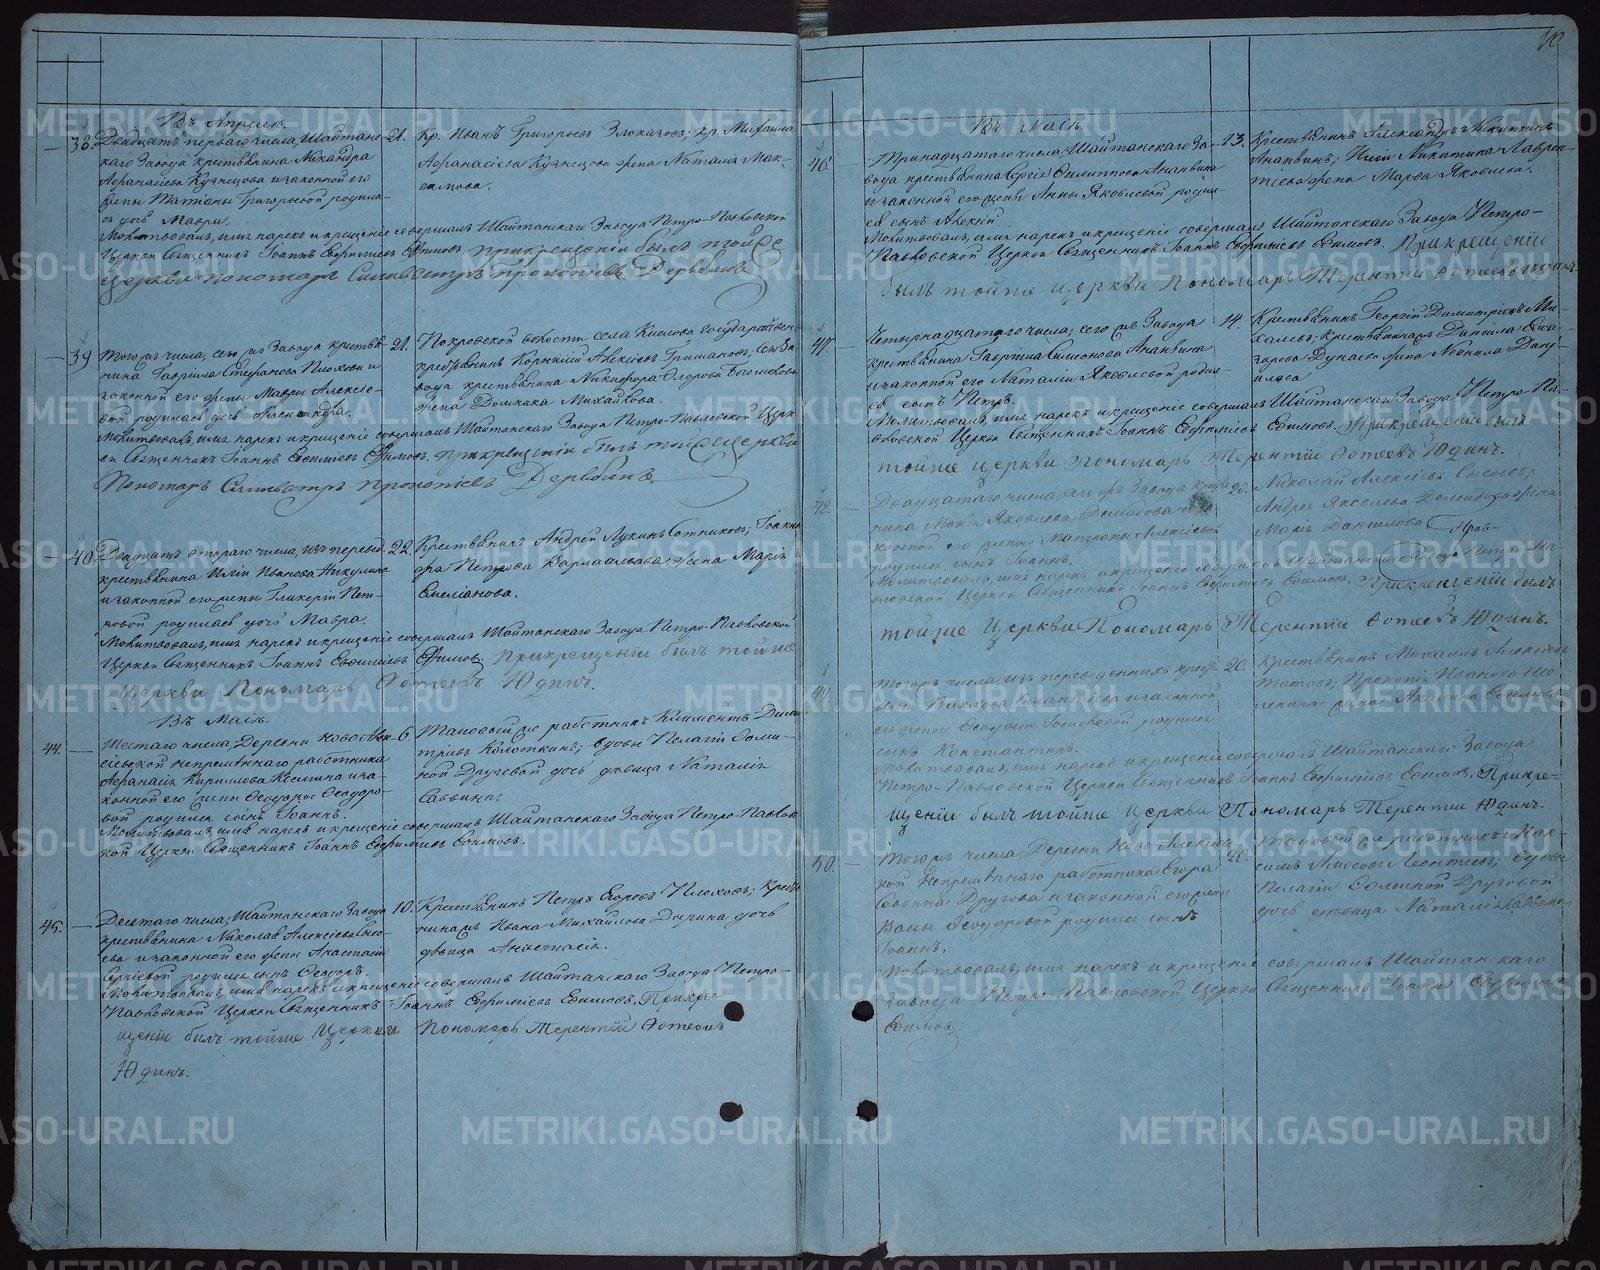 10
Въ Апрелѣ.
38.
Двадцать перваго числа, Шайтанс-
каго завода крестьянина Никандра
Афанасіева Кузнецова и законной его
жены Татіаны Григорьевой родила-
ся дочь Мавра.
21.
Кр. Иванъ Григорьевъ Злоказовъ; кр. Михаила
Афанасіева Кузнецова жена Наталія Мак-
симова.
Молитвовалъ, имя нарекъ и крещеніе совершалъ Шайтанскаго Завода Петро-Павловской
Церкви Священникъ Іоаннъ Евфиміевъ Ефимовъ. При крещеніи былъ тойже
церкви пономарь Сильвестръ Прокопіевъ Дерябинъ
39
Того жъ числа, сего жъ Завода крестья-
нина Гавріила Стефанова Плохова и
законной его жены Мавры Алексіе-
вой родилась дочь Александра.
21.
Покровской волости села Кислова государствен
крестьянинъ Корнилій Алексіевъ Гришановъ; сего За-
вода крестьянина Никифора Ѳедорова
жена Домника Михайлова.
Молитвовалъ, имя нарекъ и крещеніе совершалъ Шайтанскаго Завода Петро-Павловской Церк
ви Священникъ Іоаннъ Евфиміевъ Ефимовъ. При крещеніи былъ тойже церкви
Пономарь Сильвестръ Прокопіевъ Дерябинъ.
40.
Двадцать втораго числа, изъ перевед.
крестьянина Иліи Иванова Никулина
и законной его жены Гликеріи Пет-
ровой родилась дочь Мавра.
22.
Крестьянинъ Андрей Лукинъ Сотниковъ; Іоакин
фа Петрова жена Марія
Емеліанова.
Молитвовалъ, имя нарекъ и крещеніе совершалъ Шайтанскаго Завода Петро-Павловской
Церкви Священникъ Іоаннъ Евфиміевъ Ефимовъ. При крещеніи былъ тойже
Церкви Пономарь Ѳотеевъ Юдинъ.
Въ Маіѣ.
44.
Шестаго числа, Деревни Новоалек-
сіевской непремѣннаго работника
Афанасія Кириллова и за-
конной его жены Ѳеодоры Ѳеодоро-
вой родился сынъ Іоаннъ.
6.
Таковой же работникъ Климентъ Дими
тріевъ Колоткинъ; вдовы Пелагіи Ѳоми-
ной Друговой дочь дѣвица Наталія
Саввина.
Молитвовалъ, имя нарекъ и крещеніе совершалъ Шайтанскаго Завода Петро-Павловс
кой Церкви Священникъ Іоаннъ Евфиміевъ Ефимовъ.
45.
Десятаго числа, Шайтанскаго Завода
крестьянина Николая Алексіева
и законной его жены Анастасіи
Сергіевой родился сынъ Ѳеодоръ.
10.
Крестьянинъ Петръ Егоровъ Плоховъ; крестья
нина Ивана Михайлова дочь
дѣвица Анастасія.
Молитвовалъ, имя нарекъ и крещеніе совершалъ Шайтанскаго Завода Петро-
Павловской Церкви Священникъ Іоаннъ Евфиміевъ Ефимовъ. При кре-
щеніи былъ тойже Церкви Пономарь Терентій Ѳотеевъ
Юдинъ.
Въ Маіѣ.
46.
Тринадцатаго числа, Шайтанскаго За-
вода крестьянина Сергія Филиппова Ананьина
и законной его жены Анны Яковлевой родил-
ся сынъ Алексій
13.
Крестьянинъ Александръ Никитинъ
Ананьинъ; Иліи Никитина Лаврен-
тіева жена Марѳа Яковлева.
Молитвовалъ, имя нарекъ и крещеніе совершалъ Шайтанскаго Завода Петро-
Павловской Церкви Священникъ Іоаннъ Евфиміевъ Ефимовъ. При крещеніи
былъ тойже церкви Пономарь Терентій Ѳотеевъ Юдинъ.
47.
Четырнадцатаго числа, сего жъ Завода
крестьянина Гавріила Симеонова Ананьина
и законной его Наталіи Яковлевой родил-
ся сынъ Петръ.
14.
Крестьянинъ Георгій Димитріевъ Ми-
халевъ; крестьянина Даніила
Дунаева жена Неонила
Молитвовалъ, имя нарекъ и крещеніе совершалъ Шайтанскаго Завода Петро-Па-
вловской Церкви Священникъ Іоаннъ Евфиміевъ Ефимовъ. При крещеніи былъ
тойже церкви Пономарь Терентій Ѳотеевъ Юдинъ.
48.
Двадцатаго числа, сего жъ Завода кресть
нина Яковлева Демидова и за
конной его жены Матроны Алексіевой
родился сынъ Іоаннъ.
20.
Николай Алексіевъ Сысоевъ;
Андрея Яковлева Демидова жена
Марія Данилова
Молитвовалъ, имя нарекъ и крещеніе совершалъ Шайтанскаго Завода Петро-Па-
вловской Церкви Священникъ Іоаннъ Евфиміевъ Ефимовъ. При крещеніи былъ
тойже Церкви Пономарь Терентій Ѳотеевъ Юдинъ.
49.
Того жъ числа, изъ переведенныхъ крест.
и законной
его жены Ѳеодосіи родился
сынъ Константинъ.
20.
Крестьянинъ Михаилъ Алексіевъ
Прокопія Иванова
жена Акилина
Молитвовалъ, имя нарекъ и крещеніе совершалъ Шайтанскаго Завода
Петро-Павловской Церкви Священникъ Іоаннъ Евфиміевъ Ефимовъ. При кре-
щеніи былъ тойже церкви Пономарь Терентій Юдинъ.
50.
Того жъ числа, Деревни Ново Алексіевс
кой Непремѣннаго работника Егора
Саввина Другова и законной его жены
Ѳеодоровой родился сынъ
Іоаннъ.
20.
Таковой же работникъ Мак-
симъ Леонтіевъ; вдовы
Пелагіи Ѳоминой Друговой
дочь дѣвица Наталія Саввина
Молитвовалъ, имя нарекъ и крещеніе совершалъ Шайтанскаго
Завода Петро-Павловской Церкви Священникъ Іоаннъ Евфиміевъ
Ефимовъ
METRIKI.GASO-URAL.RU